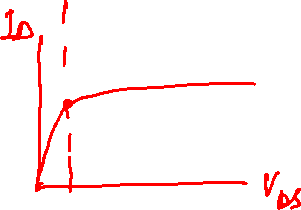 ID
VDS